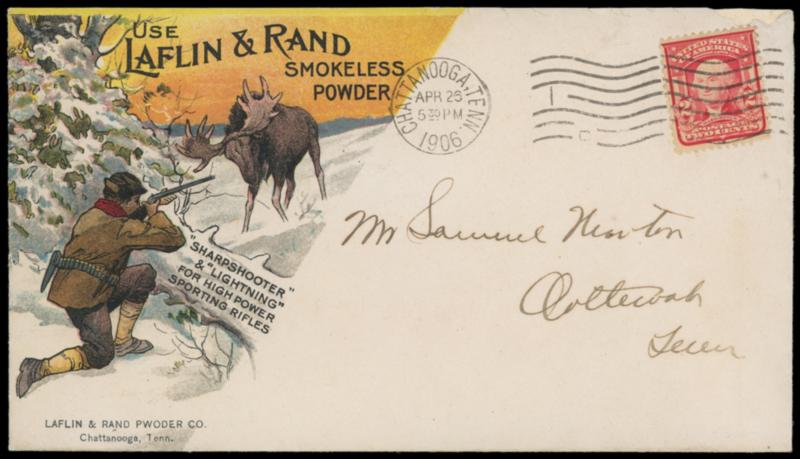 USE
LAFLIN & RAND
SMOKELESS
POWDER
CHATTANOOGA, TENN.
APR 26
5 30 PM
1906
UNITED STATES
OF
AMERICA
2 2
POSTAGE
TWO CENTS
"SHARPSHOOTER"
& "LIGHTNING"
FOR HIGH POWER
SPORTING RIFLES
Mr Samuel Newton
Ooltewah
Tenn
LAFLIN & RAND PWODER CO.
Chattanooga, Tenn.